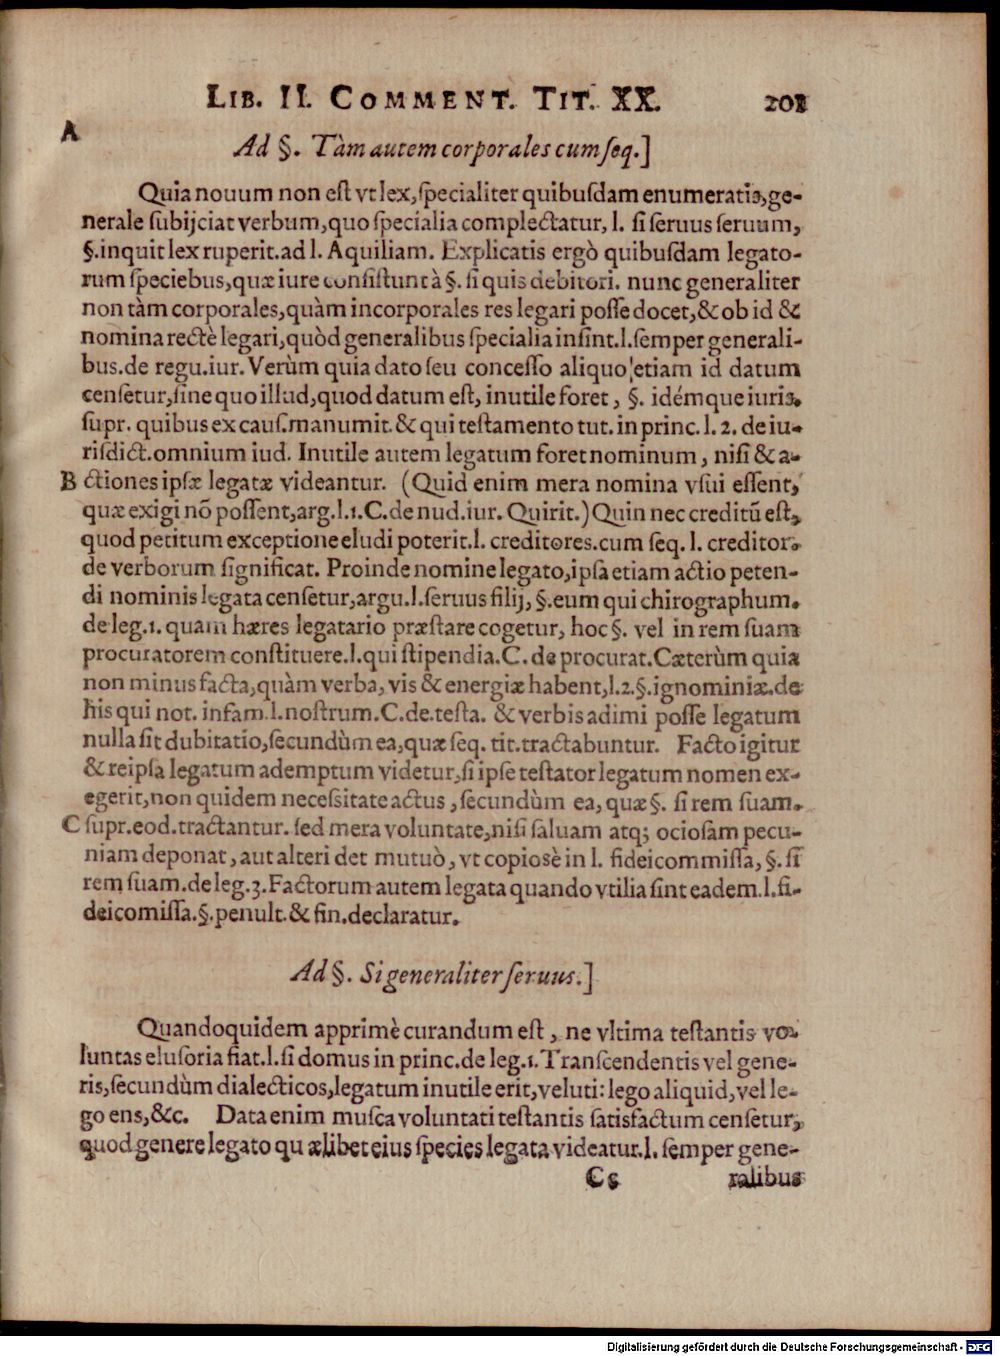 LIB. II. COMMENT. TIT. XX. 201
A
Ad §. Tàm autem corporales cum seq.]
Quia nouum non est vt lex, specialiter quibusdam enumeratis, ge-
nerale subijciat verbum, quo specialia complectatur, l. si seruus seruum,
§. inquit lex ruperit. ad l. Aquiliam. Explicatis ergò quibusdam legato-
rum speciebus, quæ iure consistunt à §. si quis debitori. nunc generaliter
non tàm corporales, quàm incorporales res legari posse docet, & ob id &
nomina rectè legari, quòd generalibus specialia insint. l. semper generali-
bus. de regu. iur. Verùm quia dato seu concesso aliquo etiam id datum
censetur, sine quo illud, quod datum est, inutile foret, §. idémque iuris.
supr. quibus ex caus. manumit. & qui testamento tut. in princ. l. 2. de iu-
risdict. omnium iud. Inutile autem legatum foret nominum, nisi & a-
B ctiones ipsæ legatæ videantur. (Quid enim mera nomina vsui essent,
quæ exigi nõ possent, arg. l. 1. C. de nud. iur. Quirit.) Quin nec creditũ est,
quod petitum exceptione eludi poterit. l. creditores. cum seq. l. creditor.
de verborum significat. Proinde nomine legato, ipsa etiam actio peten-
di nominis legata censetur, argu. l. seruus filij, §. eum qui chirographum.
de leg. 1. quam hæres legatario præstare cogetur, hoc §. vel in rem suam
procuratorem constituere. l. qui stipendia. C. de procurat. Cæterùm quia
non minus facta, quàm verba, vis & energiæ habent, l. 2. §. ignominiæ. de
his qui not. infam. l. nostrum. C. de. testa. & verbis adimi posse legatum
nulla sit dubitatio, secundùm ea, quæ seq. tit. tractabuntur. Facto igitur
& reipsa legatum ademptum videtur, si ipse testator legatum nomen ex-
egerit, non quidem necessitate actus, secundùm ea, quæ §. si rem suam.
C supr. eod. tractantur. sed mera voluntate, nisi saluam atq; ociosam pecu-
niam deponat, aut alteri det mutuò, vt copiosè in l. fideicommissa, §. si
rem suam. de leg. 3. Factorum autem legata quando vtilia sint eadem. l. fi-
deicomissa. §. penult. & fin. declaratur.
Ad §. Si generaliter seruus.]
Quandoquidem apprimè curandum est, ne vltima testantis vo-
luntas elusoria fiat. l. si domus in princ. de leg. 1. Transcendentis vel gene-
ris, secundùm dialecticos, legatum inutile erit, veluti: lego aliquid, vel le-
go ens, &c. Data enim musca voluntati testantis satisfactum censetur,
quod genere legato qu ælibet eius species legata videatur. l. semper gene-
Cc ralibus
Digitalisierung gefördert durch die Deutsche Forschungsgemeinschaft - DFG